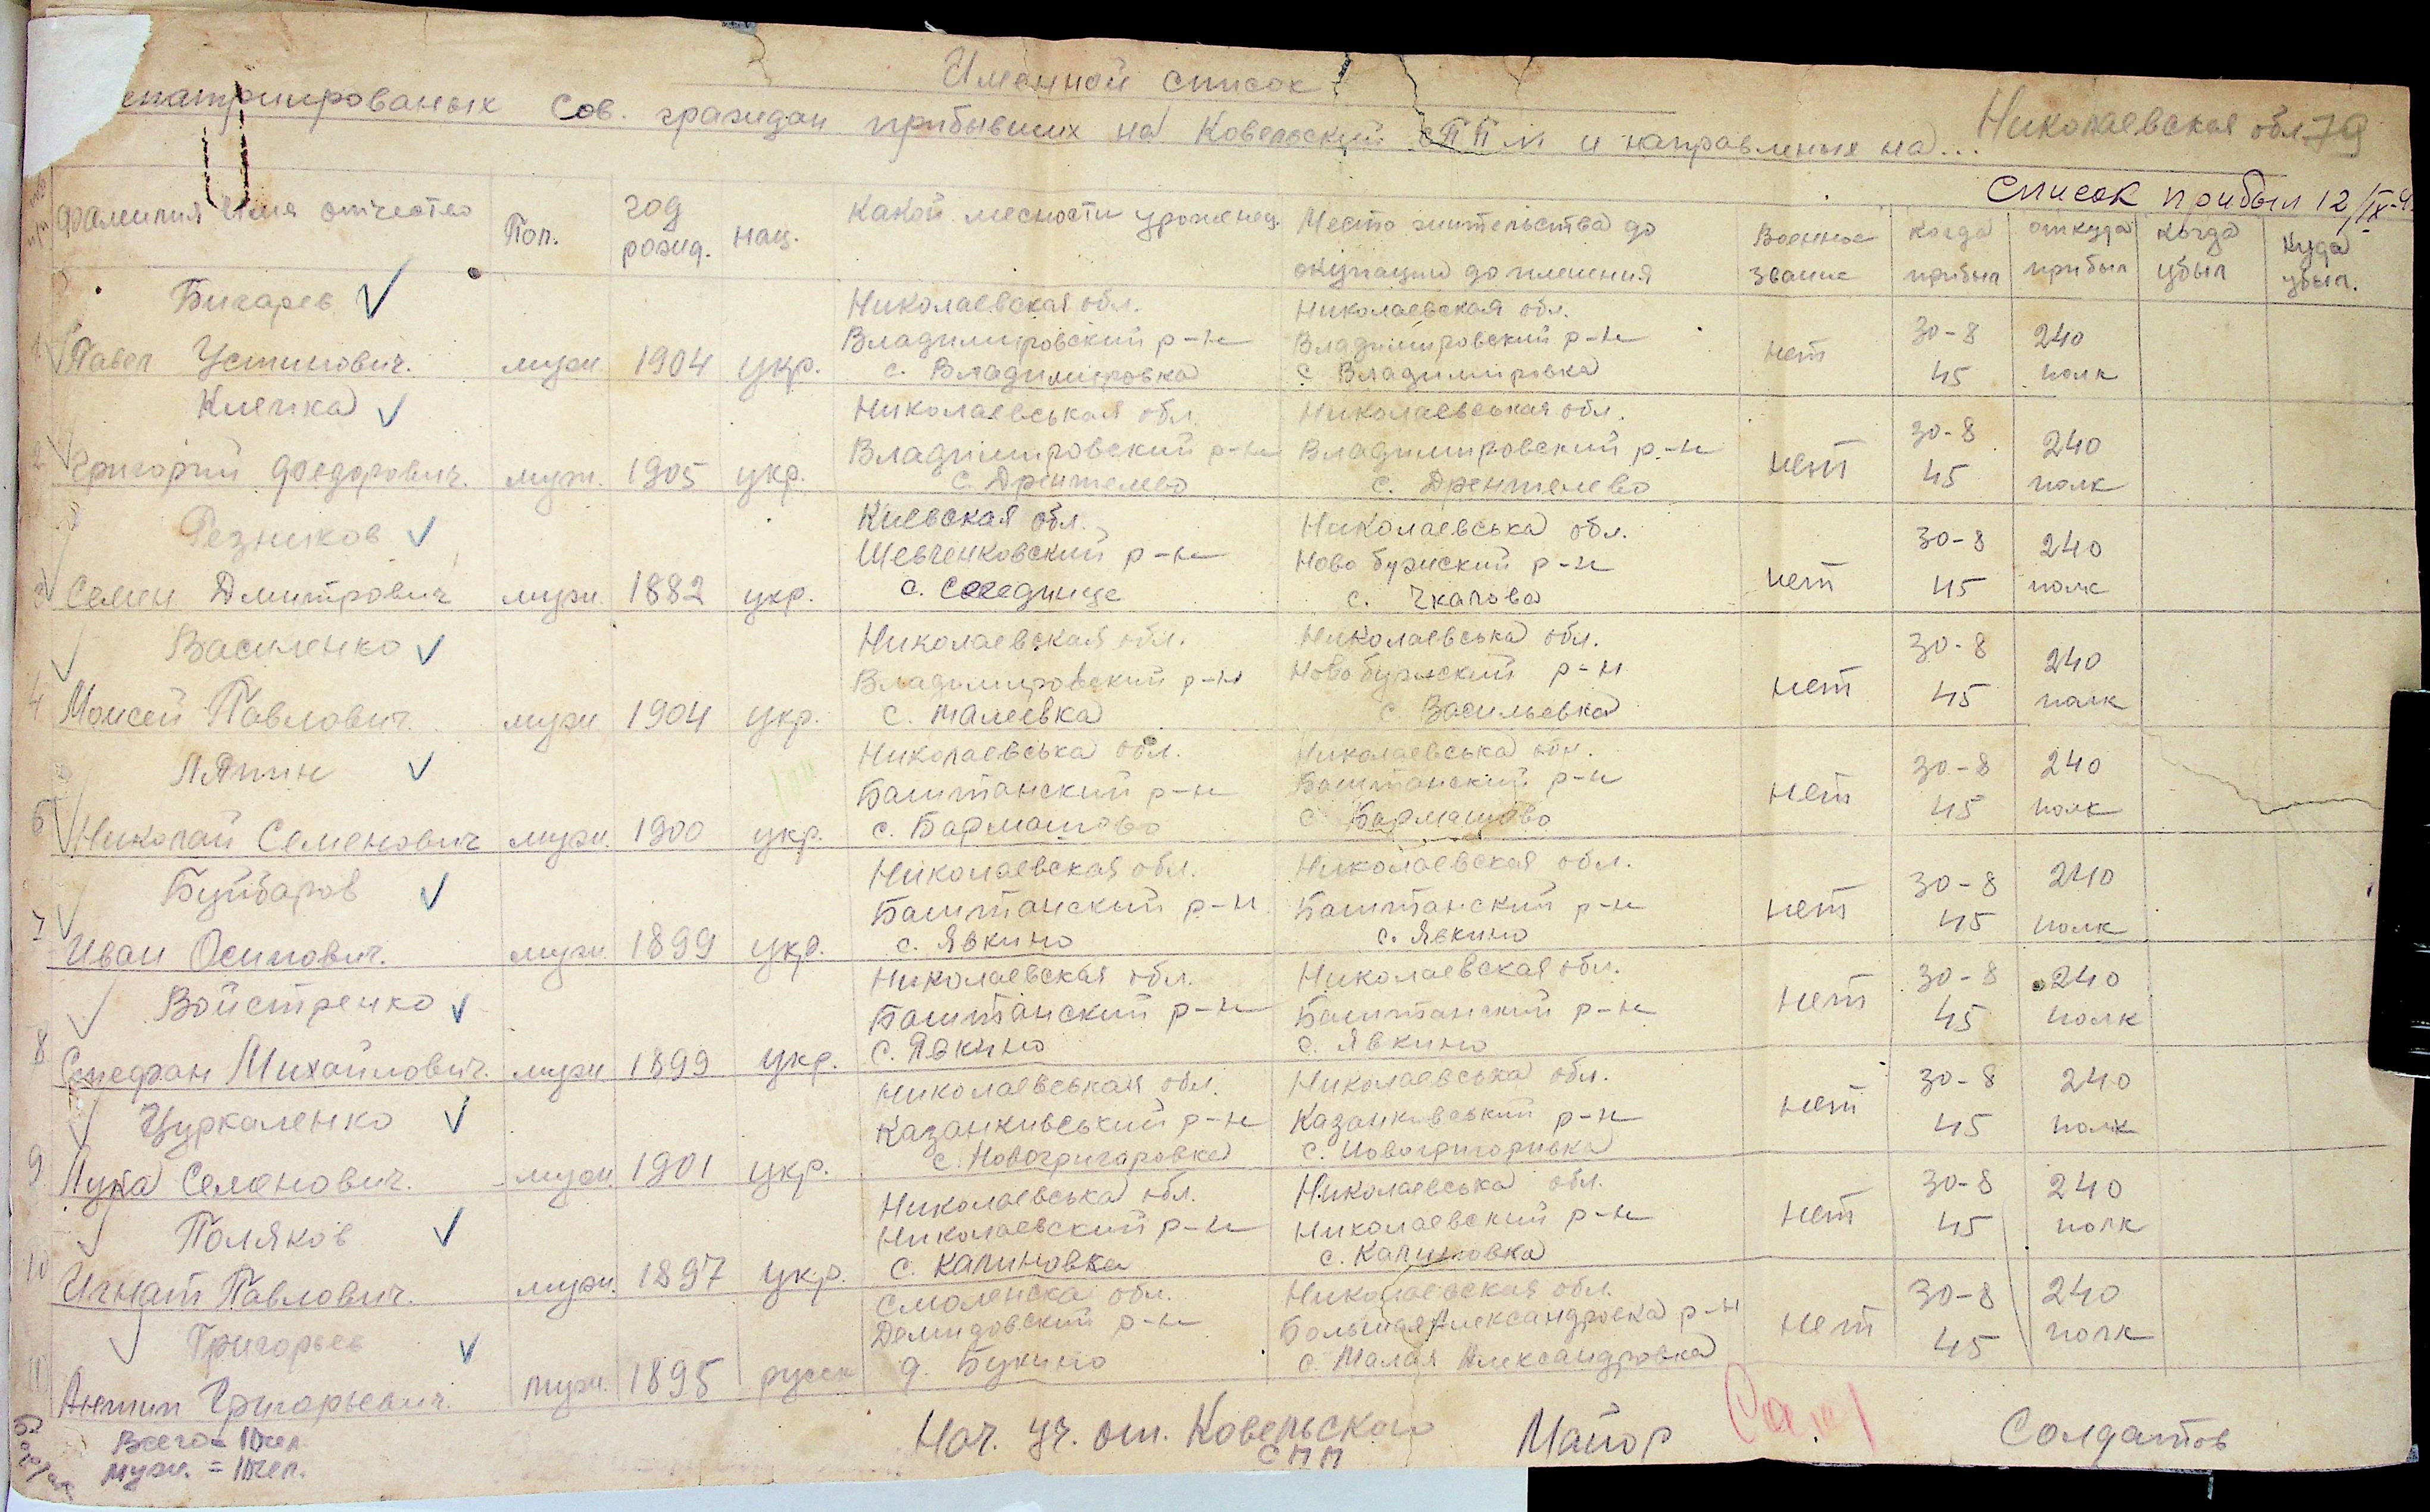 Именной список
епатриированых Сов. граждан прибывших на Ковельский сППМ и направленых на... Николаевская обл 79
Список прибыл 12/IX-4
фамилия Имя отчество Пол. год рожд. нац. Какой месности уроженец. Место жительства до окупации до пленения Военное звание когда прибыл откуда прибыл когда убыл куда убыл.
Бигарев Николаевская обл. Николаевская обл.
1 Павел Устинович. муж 1904 укр. Владимировский р-н Владимировский р-н нет 30-8 240
с. Владимировка с Владимировка 45 полк
Клечка Николаевськая обл. Николаевськая обл.
2 Григорий Федорович. муж. 1905 укр. Владимировский р-н Владимировский р-н нет 30-8 240
с. Дрентелево с. Дрентелево 45 полк
Резников Киевская обл. Николаевська обл.
3 Семен Дмитрович муж. 1882 укр. Шевченковский р-н Ново бужский р-н нет 30-8 240
с. с. Чкалова 45 полк
Василенко Николаевская обл. Николаевська обл.
4 Моисей Павлович. муж 1904 укр. Владимировский р-н Ново бужский р-н нет 30-8 240
с. Малеевка с. Васильевка 45 полк
Ляпин Николаевська обл. Николаевська обл.
6 Николай Семенович муж. 1900 укр. Баштанский р-н Баштанский р-н нет 30-8 240
с. Бармашово с Бармашово 45 полк
Буйбаров Николаевская обл. Николаевская обл.
7 Иван Осипович. муж 1899 укр. Баштанский р-н Баштанский р-н нет 30-8 240
с. Явкино с. Явкино 45 полк
Войстренко Николаевская обл. Николаевская обл.
8 Стефан Михайлович. муж 1899 укр. Баштанский р-н Баштанский р-н нет 30-8 240
с. Явкино с. Явкино 45 полк
Цуркаленко Николаевськая обл. Николаевська обл.
9 Лука Семенович. муж. 1901 укр. Казанкивський р-н Казанкивський р-н нет 30-8 240
с. Новогригоровка с. Новогригоривка 45 полк
Поляков Николаевська обл. Николаевська обл.
10 Игнат Павлович. муж. 1897 укр. Николаевский р-н Николаевский р-н нет 30-8 240
с. Калиновка с. Калиновка 45 полк
Григорьев Смоленска обл. Николаевская обл.
11 Антип Григорьевич. муж. 1895 русск Демидовский р-н Большая Александровка р-н нет 30-8 240
д. Букино с. Малая Александровка 45 полк
Всего = 10 чел
муж. = 10 чел.
Нач. уч. от. Ковельского Майор Солдатов
СПП